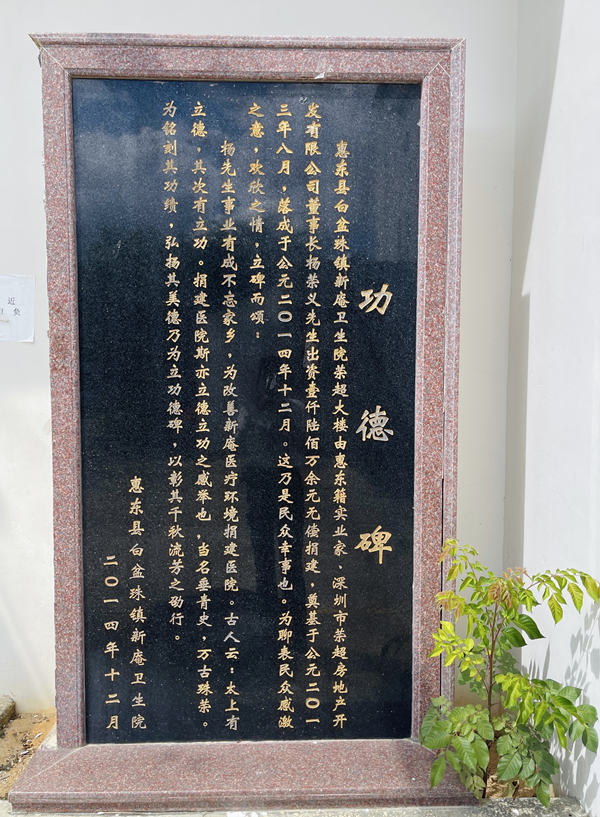 功德碑
惠东县白盆珠镇新庵卫生院荣超大楼由惠东籍实业家、深圳市荣超房地产开
发有限公司董事长杨荣义先生出资壹仟陆佰万余元无偿捐建,奠基于公元二〇一
三年八月,落成于公元二〇一四年十二月。这乃是民众幸事也。为聊表民众感激
之意,欢欣之情,立碑而颂:
杨先生事业有成不忘家乡,为改善新庵医疗环境捐建医院。古人云:太上有
立德,其次有立功。捐建医院斯亦立德立功之盛举也,当名垂青史,万古殊荣。
为铭刻其功绩,弘扬其美德乃为立功德碑,以彰其千秋流芳之劭行。
惠东县白盆珠镇新庵卫生院
二〇一四年十二月
近